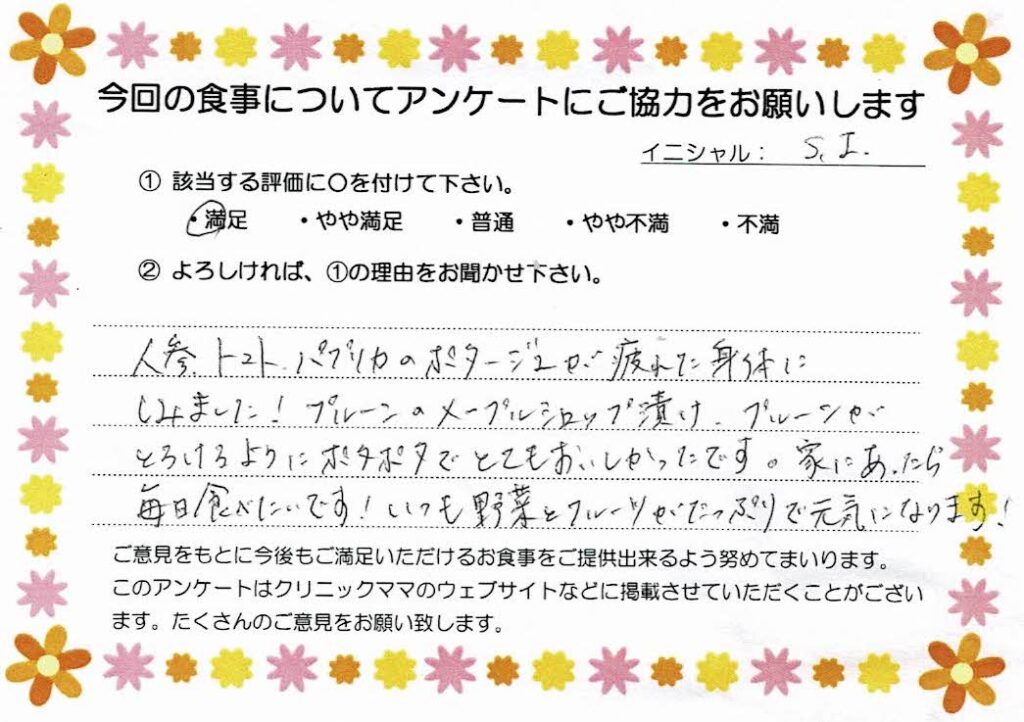 今回の食事についてアンケートにご協力をお願いします
イニシャル： S.I.
① 該当する評価に〇を付けて下さい。
・満足 ・やや満足 ・普通 ・やや不満 ・不満
② よろしければ、①の理由をお聞かせ下さい。
人参、トマト、パプリカのポタージュが疲れた身体に
しみました！プルーンのメープルシロップ漬け、プルーンが
とろけるようにポタポタでとてもおいしかったです。家にあったら
毎日食べたいです！いつも野菜とフルーツがたっぷりで元気になります！
ご意見をもとに今後もご満足いただけるお食事をご提供出来るよう努めてまいります。
このアンケートはクリニックママのウェブサイトなどに掲載させていただくことがござい
ます。たくさんのご意見をお願い致します。